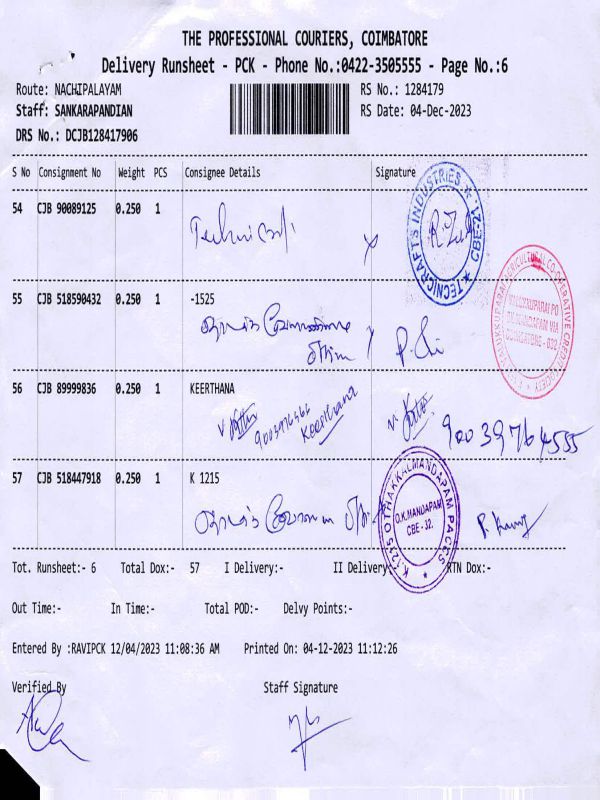 THE PROFESSIONAL COURIERS, COIMBATORE
Delivery Runsheet - PCK - Phone No.:0422-3505555 - Page No.:6
Route: NACHIPALAYAM RS No.: 1284179
Staff: SANKARAPANDIAN RS Date: 04-Dec-2023
DRS No.: DCJB128417906
S No Consignment No Weight PCS Consignee Details Signature
54 CJB 90089125 0.250 1
TECNICRAFTS INDUSTRIES ★ CBE-21 ★
55 CJB 518590432 0.250 1 -1525
56 CJB 89999836 0.250 1 KEERTHANA
Keerthana
90039764555
57 CJB 518447918 0.250 1 K 1215
K.1215 OTHAKKALMANDAPAM PACCS ★
O.K.MANDAPAM
CBE - 32.
Tot. Runsheet:- 6 Total Dox:- 57 I Delivery:- II Delivery:- RTN Dox:-
Out Time:- In Time:- Total POD:- Delvy Points:-
Entered By :RAVIPCK 12/04/2023 11:08:36 AM Printed On: 04-12-2023 11:12:26
Verified By Staff Signature